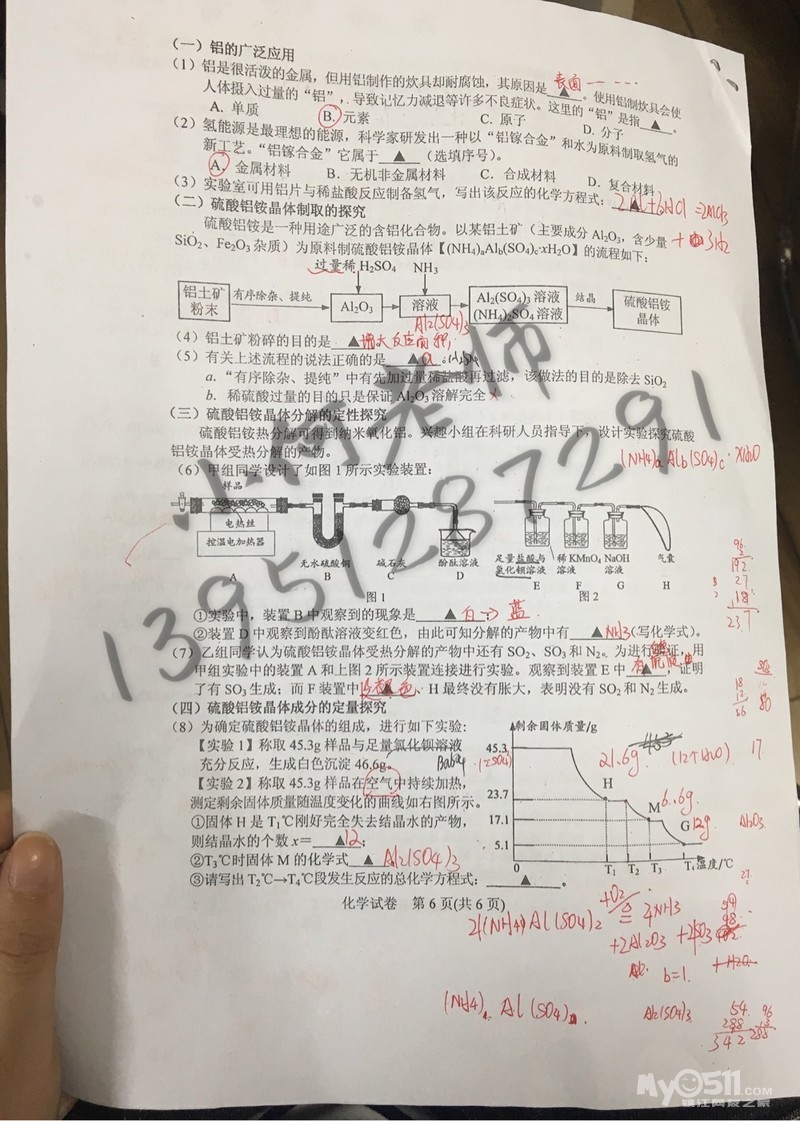 (一)铝的广泛应用
(1)铝是很活泼的金属,但用铝制作的炊具却耐腐蚀,其原因是 ▲ 。使用铝制炊具会使
表面
人体摄入过量的“铝”,导致记忆力减退等许多不良症状。这里的“铝”是指 ▲ 。
A. 单质 B. 元素 C. 原子 D. 分子
(2)氢能源是最理想的能源,科学家研发出一种以“铝镓合金”和水为原料制取氢气的
新工艺。“铝镓合金”它属于 ▲ (选填序号)。
A. 金属材料 B. 无机非金属材料 C. 合成材料 D. 复合材料
(3)实验室可用铝片与稀盐酸反应制备氢气,写出该反应的化学方程式: ▲
2Al+6HCl=2AlCl3
+3H2
(二)硫酸铝铵晶体制取的探究
硫酸铝铵是一种用途广泛的含铝化合物。以某铝土矿(主要成分 Al2O3,含少量
SiO2、Fe2O3 杂质)为原料制硫酸铝铵晶体【(NH4)aAlb(SO4)c·xH2O】的流程如下:
过量稀 H2SO4 NH3
铝土矿粉末 有序除杂、提纯 Al2O3 溶液 Al2(SO4)3 溶液 (NH4)2SO4 溶液 结晶 硫酸铝铵晶体
Al2(SO4)3
(4)铝土矿粉碎的目的是 ▲ 增大反应面积
(5)有关上述流程的说法正确的是 ▲ a
a.“有序除杂、提纯”中有先加过量稀盐酸再过滤,该做法的目的是除去 SiO2
b. 稀硫酸过量的目的只是保证 Al2O3 溶解完全
(三)硫酸铝铵晶体分解的定性探究
硫酸铝铵热分解可得到纳米氧化铝。兴趣小组在科研人员指导下,设计实验探究硫酸
铝铵晶体受热分解的产物。
(NH4)aAlb(SO4)c·xH2O
(6)甲组同学设计了如图 1 所示实验装置:
样品
电热丝
控温电加热器
无水硫酸铜 碱石灰 酚酞溶液
A B C D
图 1
足量盐酸与氯化钡溶液 稀 KMnO4 溶液 NaOH 溶液 气囊
E F G H
图 2
①实验中,装置 B 中观察到的现象是 ▲ 白→蓝
②装置 D 中观察到酚酞溶液变红色,由此可知分解的产物中有 ▲ NH3 (写化学式)。
(7)乙组同学认为硫酸铝铵晶体受热分解的产物中还有 SO2、SO3 和 N2。为进行验证,用
甲组实验中的装置 A 和上图 2 所示装置连接进行实验。观察到装置 E 中 ▲ ,证明
了有 SO3 生成;而 F 装置中 ▲ 、H 最终没有胀大,表明没有 SO2 和 N2 生成。
(四)硫酸铝铵晶体成分的定量探究
(8)为确定硫酸铝铵晶体的组成,进行如下实验:
【实验 1】称取 45.3g 样品与足量氯化钡溶液
充分反应,生成白色沉淀 46.6g。
BaSO4
【实验 2】称取 45.3g 样品在空气中持续加热,
测定剩余固体质量随温度变化的曲线如右图所示。
①固体 H 是 T1℃刚好完全失去结晶水的产物,
则结晶水的个数 x= ▲ 12 ;
②T3℃时固体 M 的化学式 ▲ Al2(SO4)3
③请写出 T2℃→T4℃段发生反应的总化学方程式: ▲ 。
剩余固体质量/g
45.3
23.7
17.1
5.1
0 T1 T2 T3 T4 温度/℃
H
M
G
21.6g (12个H2O)
6.6g
12g Al2O3
化学试卷 第 6 页(共 6 页)
+O2
4NH3
b=1
Al2(SO4)3
54
288
342
小何老师
13951287291
My0511.COM
镇江网友之家